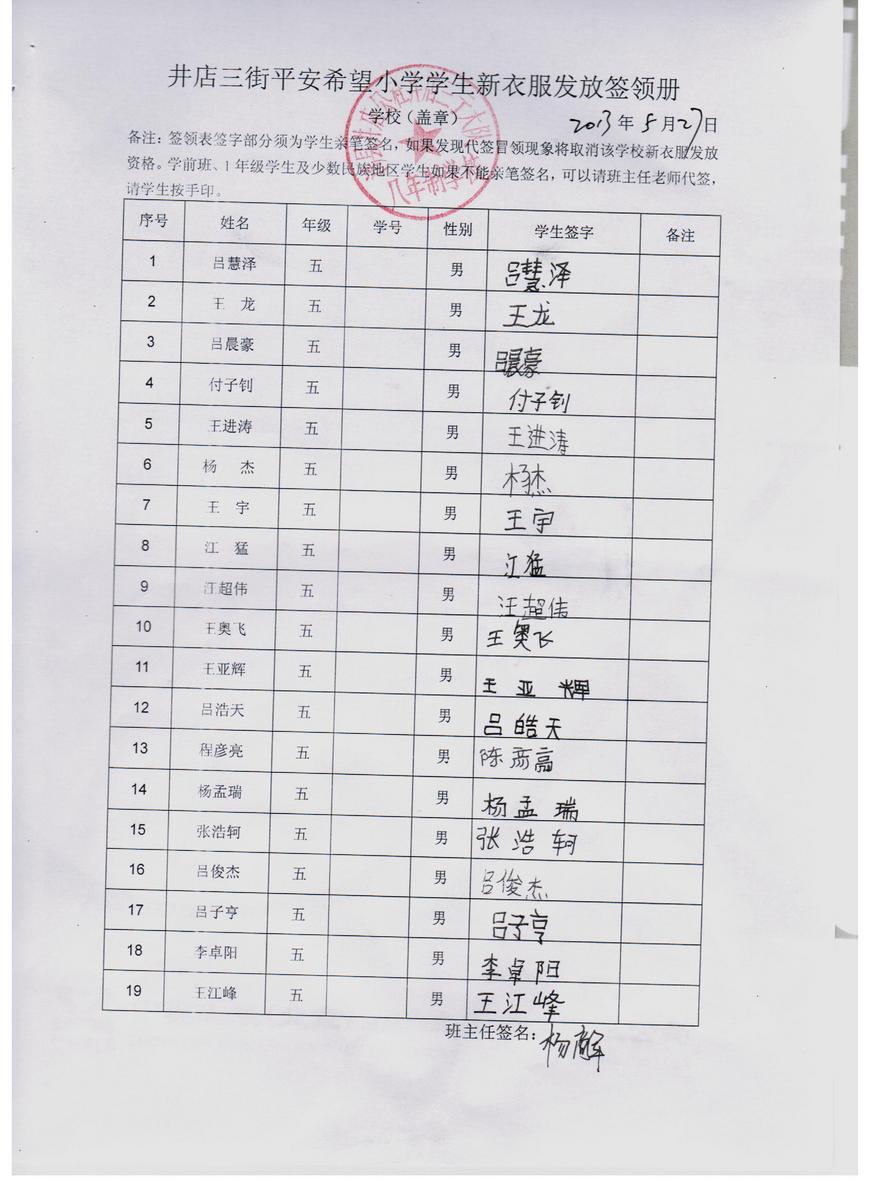 井店三街平安希望小学学生新衣服发放签领册
学校（盖章）
2013年5月27日
备注：签领表签字部分须为学生亲笔签名，如果发现代签冒领现象将取消该学校新衣服发放
资格。学前班、1年级学生及少数民族地区学生如果不能亲笔签名，可以请班主任老师代签，
请学生按手印。
序号 姓名 年级 学号 性别 学生签字 备注
1 吕慧泽 五 男 吕慧泽
2 王 龙 五 男 王龙
3 吕晨豪 五 男 吕晨豪
4 付子钊 五 男 付子钊
5 王进涛 五 男 王进涛
6 杨 杰 五 男 杨杰
7 王 宇 五 男 王宇
8 江 猛 五 男 江猛
9 汪超伟 五 男 汪超伟
10 王奥飞 五 男 王奥飞
11 王亚辉 五 男 王亚辉
12 吕浩天 五 男 吕皓天
13 程彦亮 五 男 陈彦高
14 杨孟瑞 五 男 杨孟瑞
15 张浩轲 五 男 张浩轲
16 吕俊杰 五 男 吕俊杰
17 吕子亨 五 男 吕子亨
18 李卓阳 五 男 李卓阳
19 王江峰 五 男 王江峰
班主任签名：杨